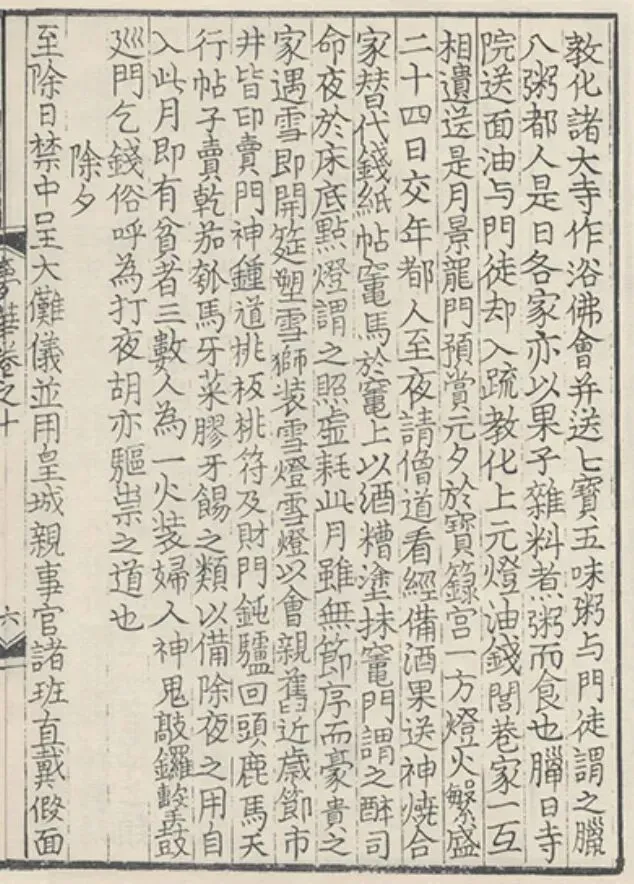 教化諸大寺作浴佛會并送七寶五味粥与門徒謂之臘
八粥都人是日各家亦以果子雜料煮粥而食也臘日寺
院送面油与門徒却入疏教化上元燈油錢閭巷家一互
相遺送是月景龍門預賞元夕於寶籙宮一方燈火繁盛
二十四日交年都人至夜請僧道看經備酒果送神燒合
家替代錢紙帖竈馬於竈上以酒糟塗抹竈門謂之醉司
命夜於床底點燈謂之照虛耗此月雖無節序而豪貴之
家遇雪即開筵塑雪獅裝雪燈雪燈以會親舊近歲節市
井皆印賣門神鍾道桃板桃符及財門鈍驢回頭鹿馬天
行帖子賣乾茄瓠馬牙菜膠牙餳之類以備除夜之用自
入此月即有貧者三數人為一火装婦人神鬼敲鑼擊鼓
廵門乞錢俗呼為打夜胡亦驅祟之道也
除夕
至除日禁中呈大儺儀並用皇城親事官諸班直戴假面
夢華卷之十
六